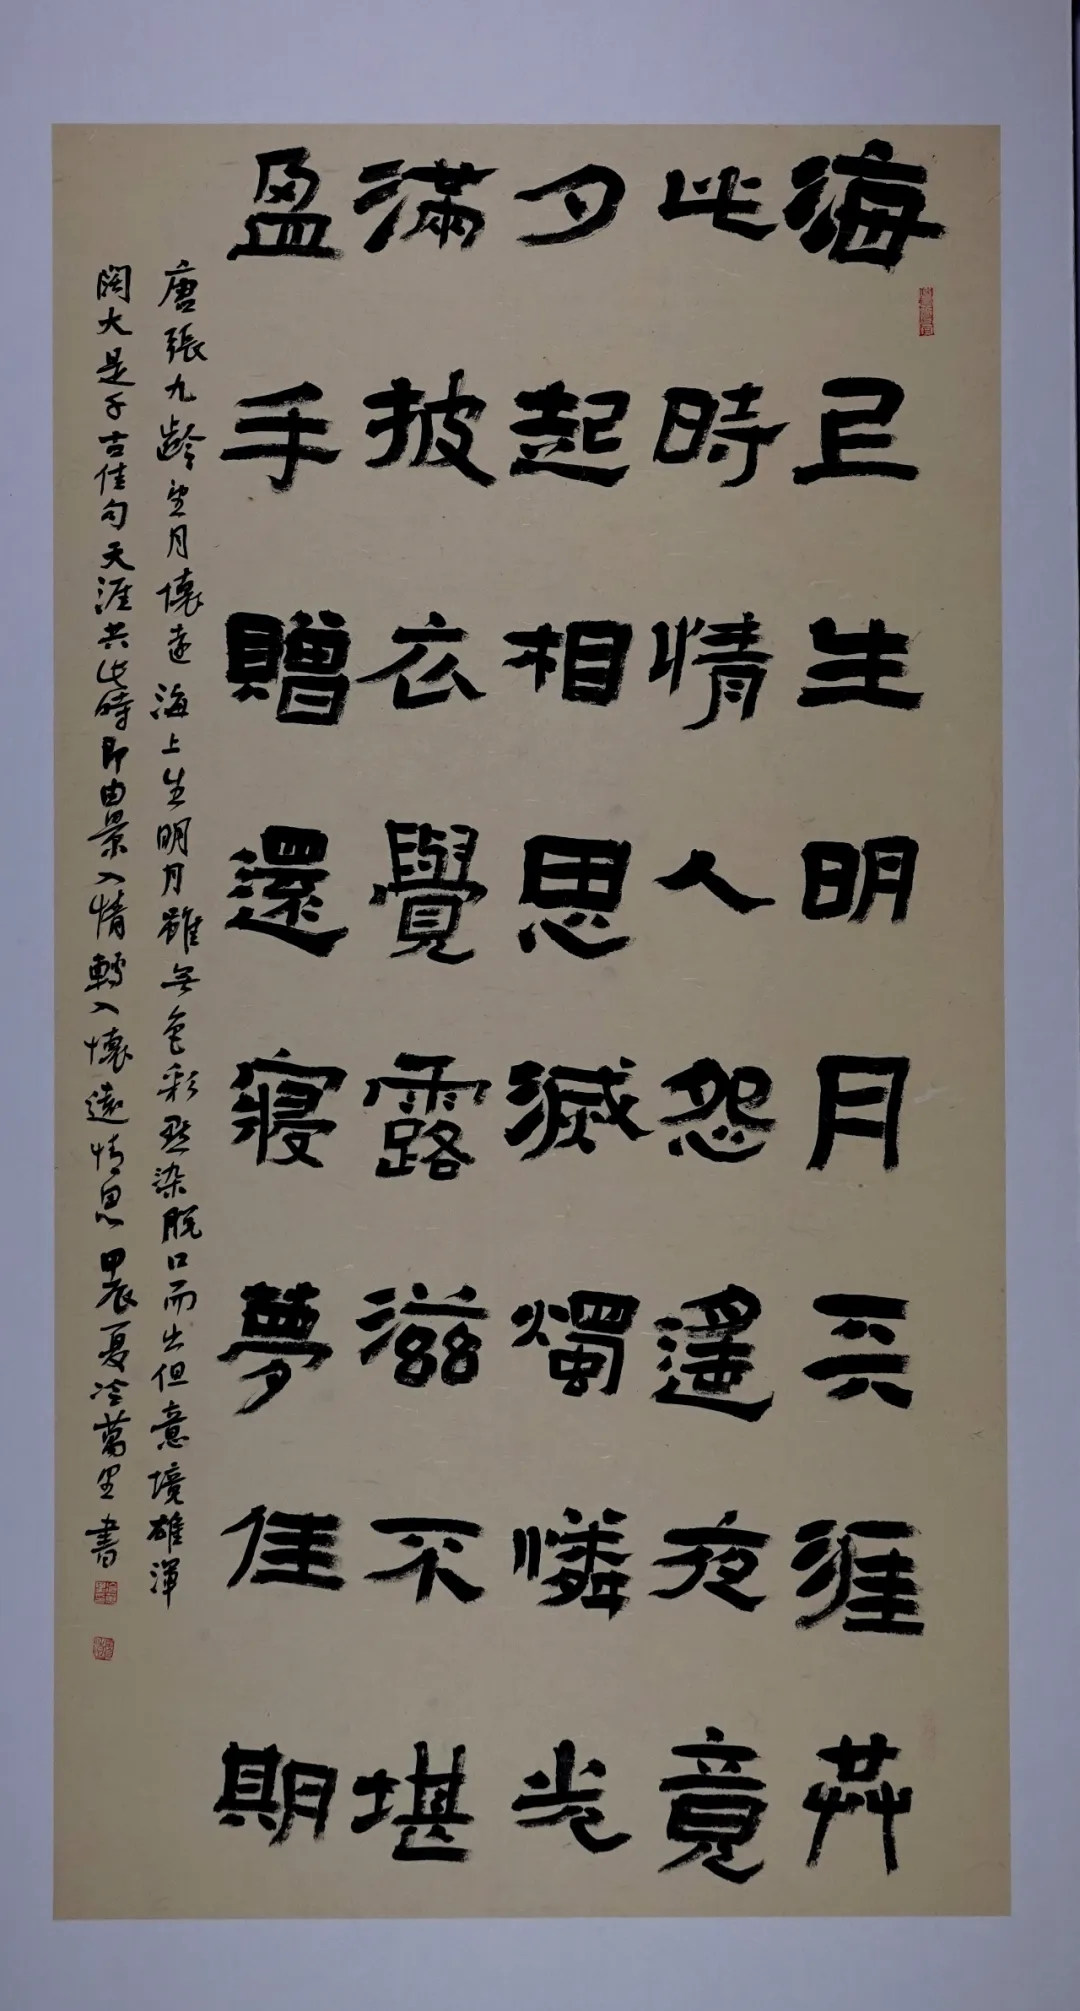 海上生明月天涯共
此時情人怨遥夜竟
夕起相思滅燭憐光
滿披衣覺露滋不堪
盈手贈還寢夢佳期
唐張九齡望月懷遠海上生明月雖無色彩點染脫口而出但意境雄渾
闊大是千古佳句天涯共此時即由景入情轉入懷遠情思甲辰夏冷萬里書